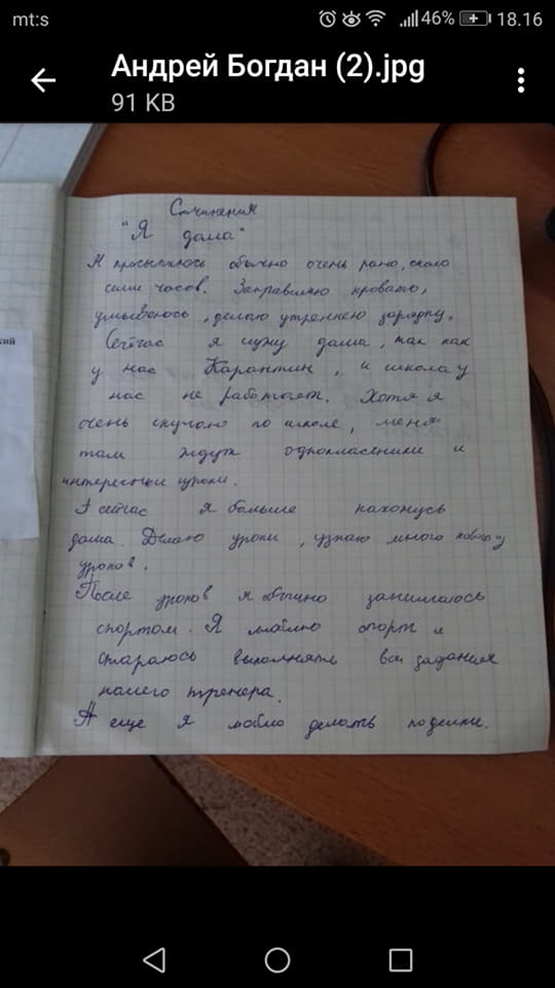 mt:s 46% 18.16
Андрей Богдан (2).jpg
91 KB
кий
Сочинения
"Я дома"
Я просыпаюсь обычно очень рано, около
семи часов. Заправляю кровать,
умываюсь, делаю утреннею зарядку.
Сейчас я сижу дама, так как
у нас Карантин, и школа у
нас не работает. Хотя я
очень скучаю по школе, меня
там ждут однокласники и
интересные уроки.
А сейчас я больше нахожусь
дама. Делаю уроки, узнаю много нового у
уроков.
После уроков я обычно занимаюсь
спортом. Я люблю спорт и
стараюсь выполнять все задания
нашего тренера.
А еще я люблю делать поделки.